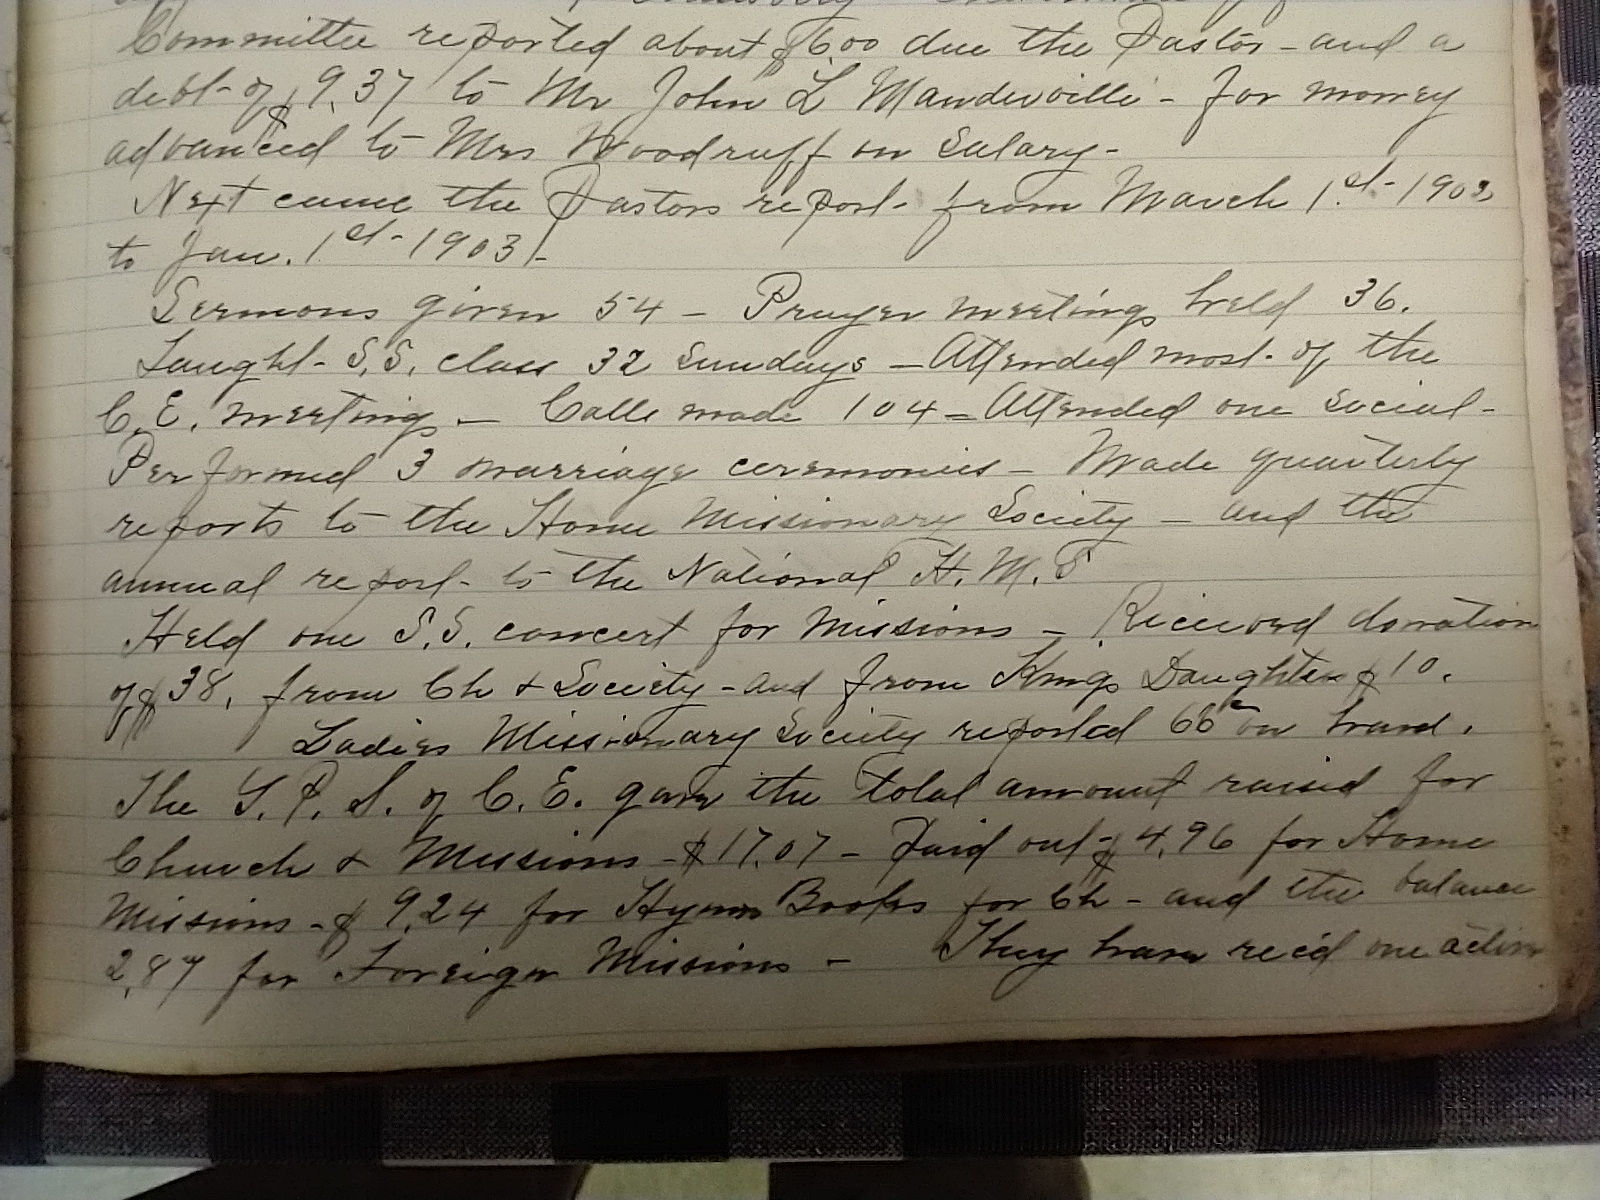 Committee reported about $6.00 due the Pastor - and a
debt of $9.37 to Mr John L Mandeville - for money
advanced to Mrs Woodruff on Salary -
Next came the Pastors report - from March 1st - 1902
to Jan. 1st - 1903 -
Sermons given 54 - Prayer meetings held 36.
Taught - S.S. class 32 Sundays - Attended most of the
C.E. meetings - Calls made 104 - Attended one social -
Performed 3 marriage ceremonies - Made quarterly
reports to the Home Missionary Society - and the
annual report - to the National H.M.S
Held one S.S. concert for Missions - Received donation
of $38. from Ch & Society - and from Kings Daughters $10.
Ladies Missionary Society reported 66c on hand.
The Y.P.S. of C.E. gave the total amount raised for
Church & Missions - $17.07 - Paid out $4.96 for Home
Missions - $9.24 for Hymn Books for Ch - and the balance
2.87 for Foreign Missions - They have rec'd one active